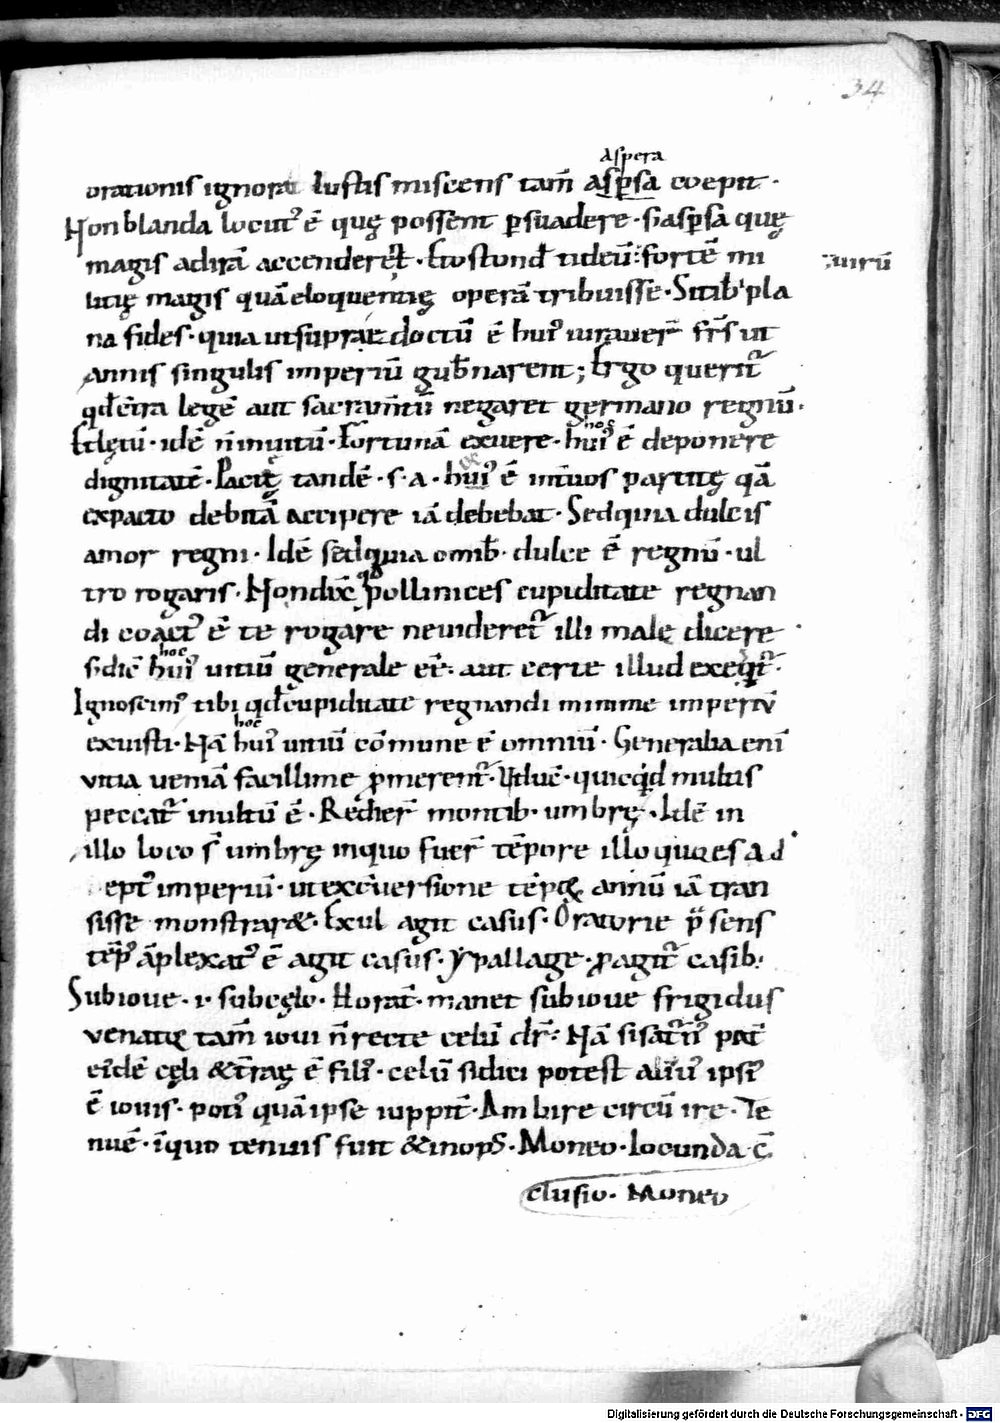 34
Aspera
orationis ignorat Iustis miscens tam̄ asp̱sa coepit ·
Non blanda locut᾽ ē quę possent p̱suadere · si asp̱sa quę
magis ad irā accender&̄ · Et ostond̄ tideū : forte mi : uirū
litię magis quā eloquentię operā tribuisse · Sit tibi pla
na fides · quia ut supra doctū ē hui᾽ iurauer̄ fr̄s ut
Annis singulis imperiū gub̄narent ; Ergo querit᾽
qđ ct̄ra legē aut sacram̄tū negaret germano regnū ·
hoc
Et lętū · idē n̄ inuitū · Fortunā exuere · hui᾽ ē deponere
dignitatē · Pacię tandē · s · a · hui᾽ ē int̄uos partitę quā
ex pacto debitā accipere iā debebat · Sed quia dulcis
amor regni · Idē sed quia omib̄ · dulce ē regnū · ul
tro rogaris · Non dix̄ pollinices cupiditate regnan
di coact᾽ ē te rogare ne uideret᾽ illi malę dicere
hoc
s · diē hui᾽ uitiū generale eē · aut certe illud exeq̄t᾽ ·
Ignoscim᾽ tibi qđ cupiditate regnandi minime imperiū
hoc
exuisti · Nā hui᾽ uitiū cōmune ē omniū · Generalia enī
vitia ueniā facillime p̱merent᾽ · quicq̄d multis
peccat᾽ inultū ē · Redier̄ montib · umbrę · Idē in
illo loco s̄ umbrę in quo fuer̄ tēpore illo quo es ad
ept᾽ imperiū · ut ex c̄uersione tēpoꝝ annū iā tran
sisse monstrar& · Exul agit casus · Oratorie p̄sens
tēp᾽ āplexat᾽ ē agit casus · ypallage · p̱agit᾽ casib :
Sub ioue · i · sub cęlo · Horat̄ · manet sub ioue frigidus
venatę tam̄ ioui n̄ recte celū dr̄ : Nā si sat᾽n᾽ pat̄
eidē cęli & t̄rę ē fili᾽ · celū si dici potest aui᾽ ipsi᾽
ē iouis · poti᾽ quā ipse iuppit̄ · Ambire circū ire · Te
nuē · in quo tenuis fuit & inops · Moneo · Iocunda c̄
clusio · Moneo
Digitalisierung gefördert durch die Deutsche Forschungsgemeinschaft - DFG